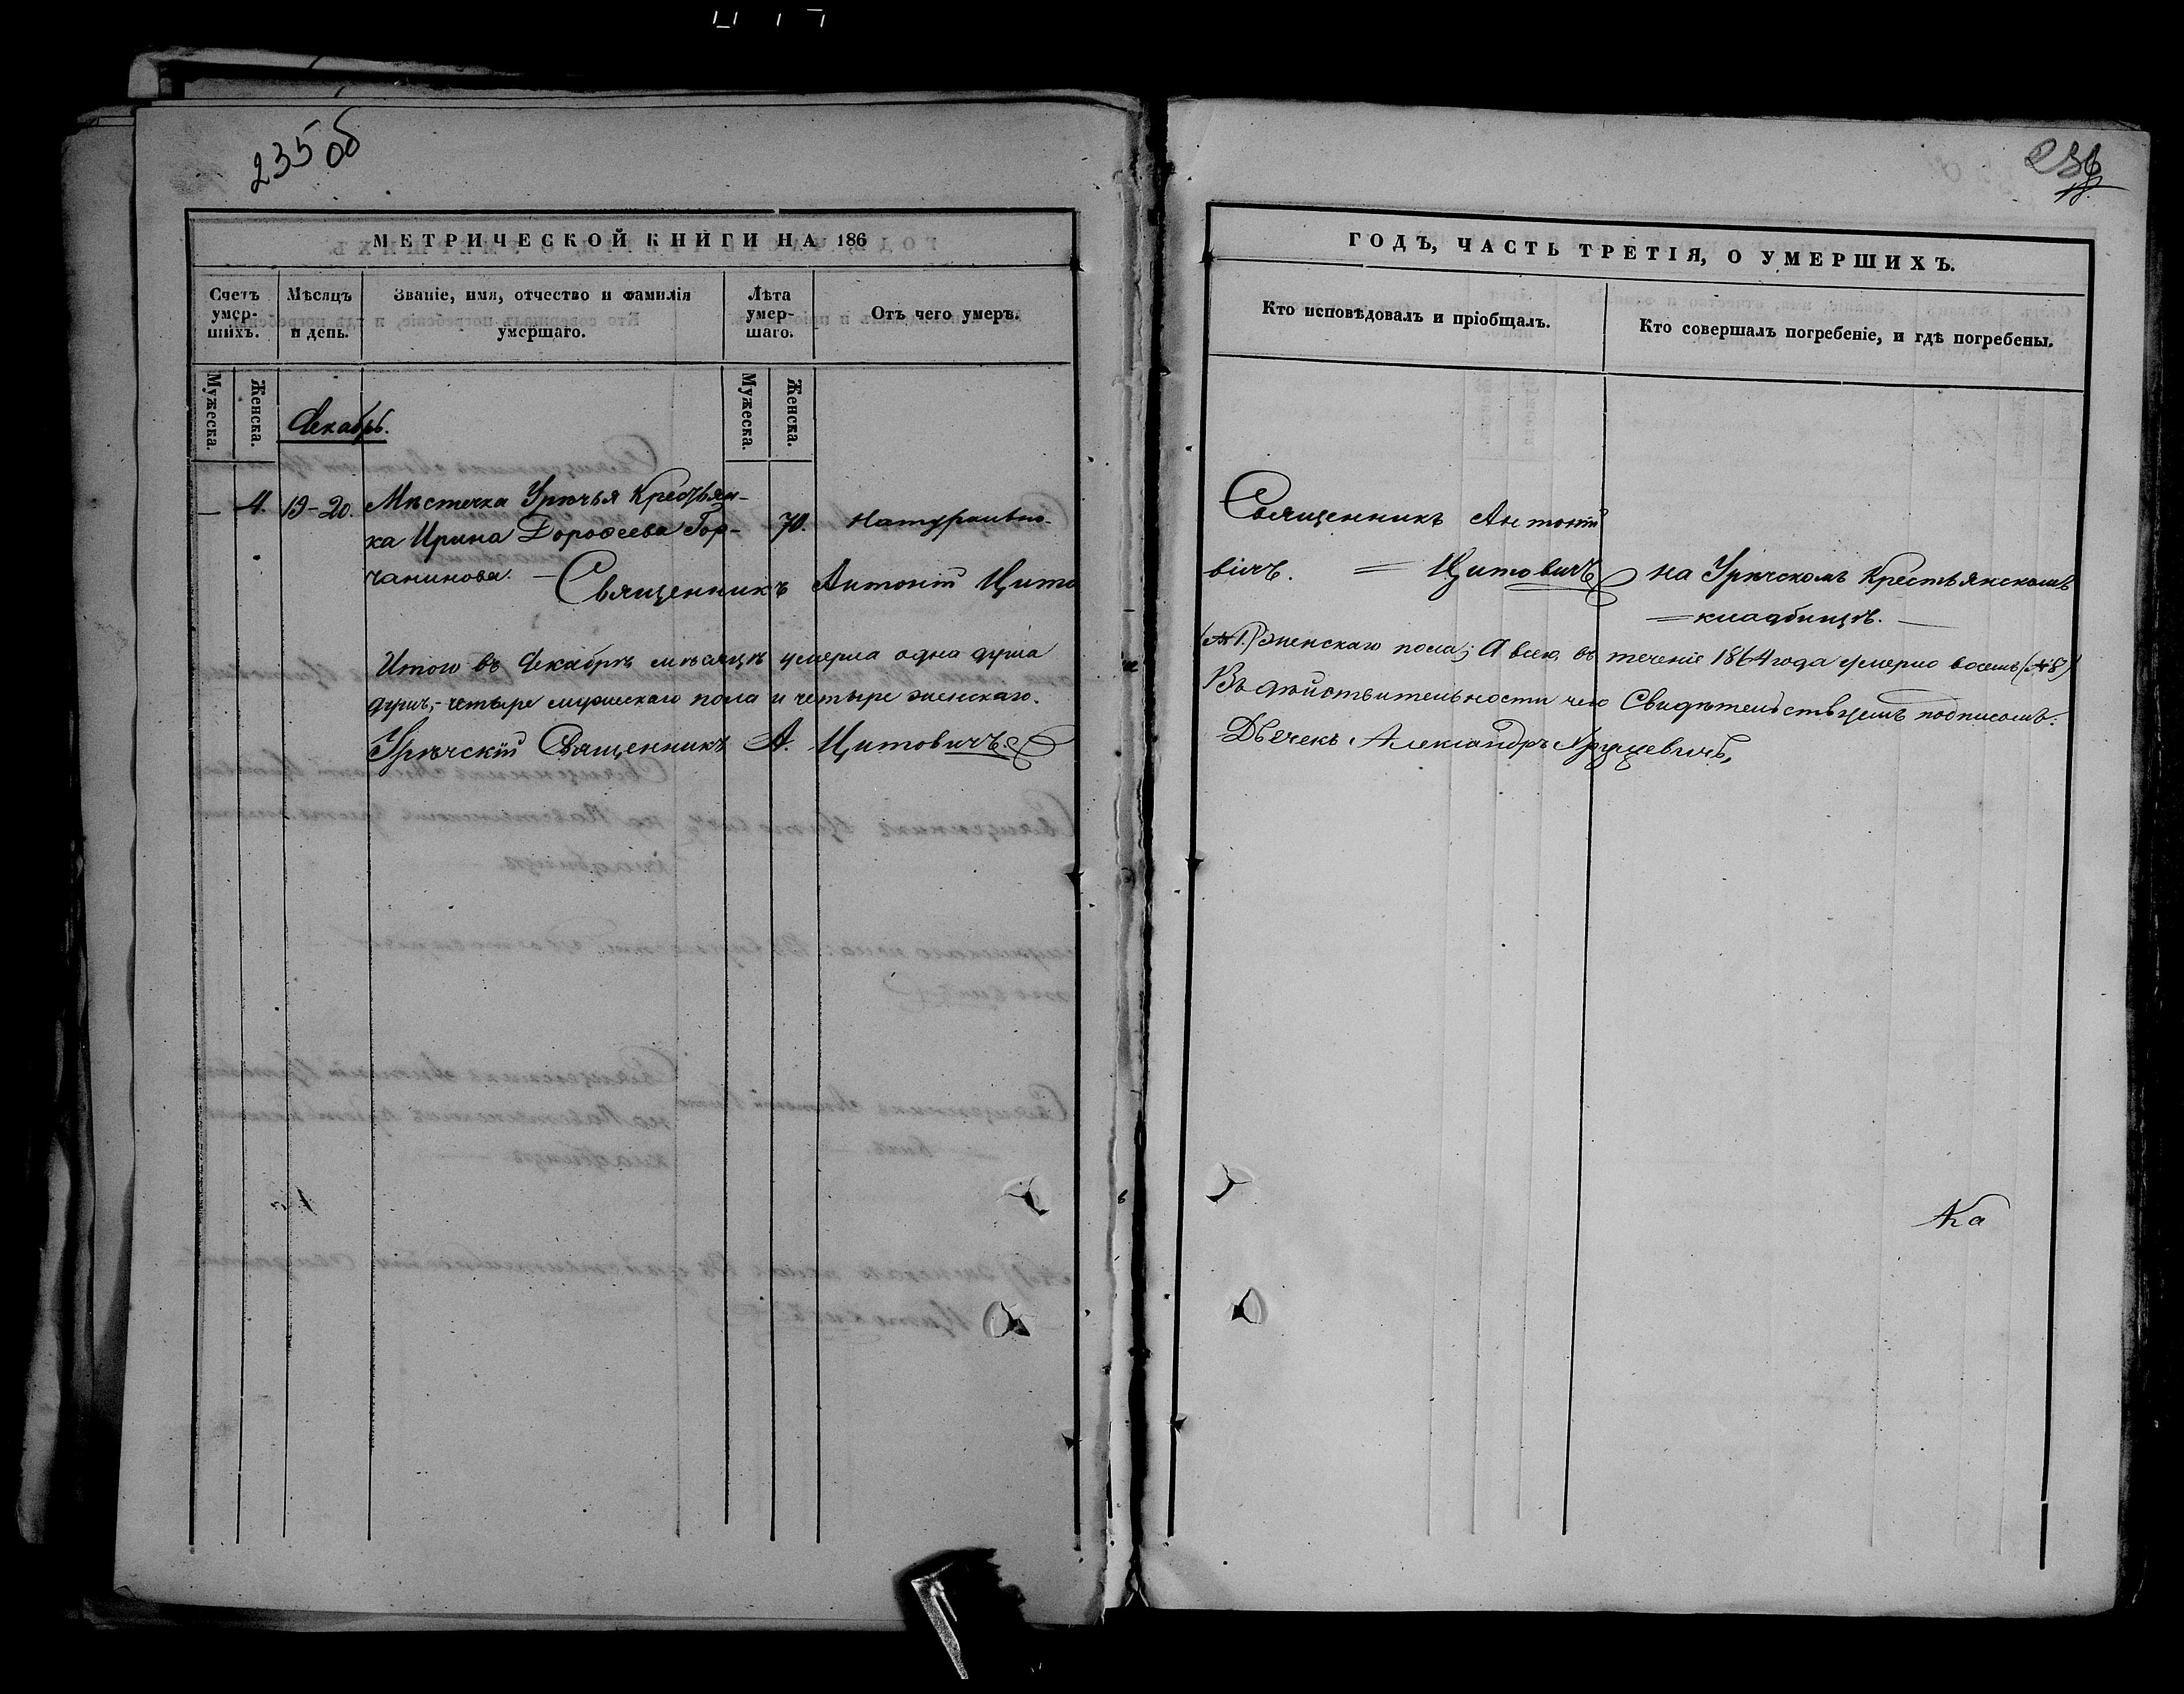 235 об
МЕТРИЧЕСКОЙ КНИГИ НА 186
Счетъ умер-шихъ.
Мѣсяцъ и день.
Званіе, имя, отчество и фамилія умершаго.
Лѣта умер-шаго.
Отъ чего умеръ.
Мужеска.
Женска.
Мужеска.
Женска.
Декабрь.
— 4. 19-20. Мѣстечка Урѣчья Крестьян-
ка Ирина Дорофеева Гор- 70. Натурально.
чанинова. — Священникъ Антоній Цито
Итого въ Декабрѣ мѣсяцѣ умерла одна душа
душъ,- четыре мужескаго пола и четыре женскаго.
Урѣчскій Священникъ А. Цитовичъ.
236
ГОДЪ, ЧАСТЬ ТРЕТІЯ, О УМЕРШИХЪ.
Кто исповѣдовалъ и пріобщалъ.
Кто совершалъ погребеніе, и гдѣ погребены.
Священникъ Антоній
вичъ. = Цитовичъ на Урѣчскомъ Крестьянскомъ
= кладбищѣ. —
(№ 1.) женскаго пола; А всего въ теченіе 1864 года умерло восемь (№ 8)
Въ дѣйствительности чего Свидѣтельствуемъ подписомъ.
Дьячекъ Александръ